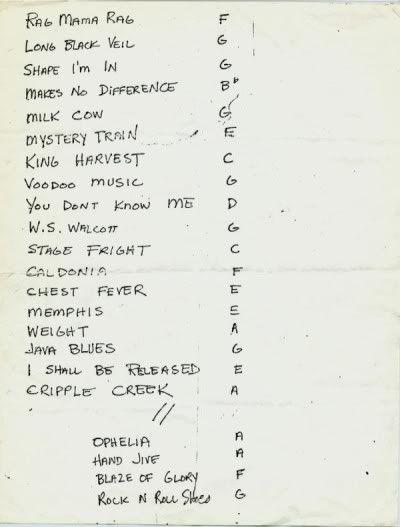 RAG MAMA RAG F
LONG BLACK VEIL G
SHAPE I'M IN G
MAKES NO DIFFERENCE Bb
MILK COW G
MYSTERY TRAIN E
KING HARVEST C
VOODOO MUSIC G
YOU DONT KNOW ME D
W.S. WALCOTT G
STAGE FRIGHT C
CALDONIA F
CHEST FEVER E
MEMPHIS E
WEIGHT A
JAVA BLUES G
I SHALL BE RELEASED E
CRIPPLE CREEK A
//
OPHELIA A
HAND JIVE A
BLAZE OF GLORY F
ROCK N ROLL SHOES G